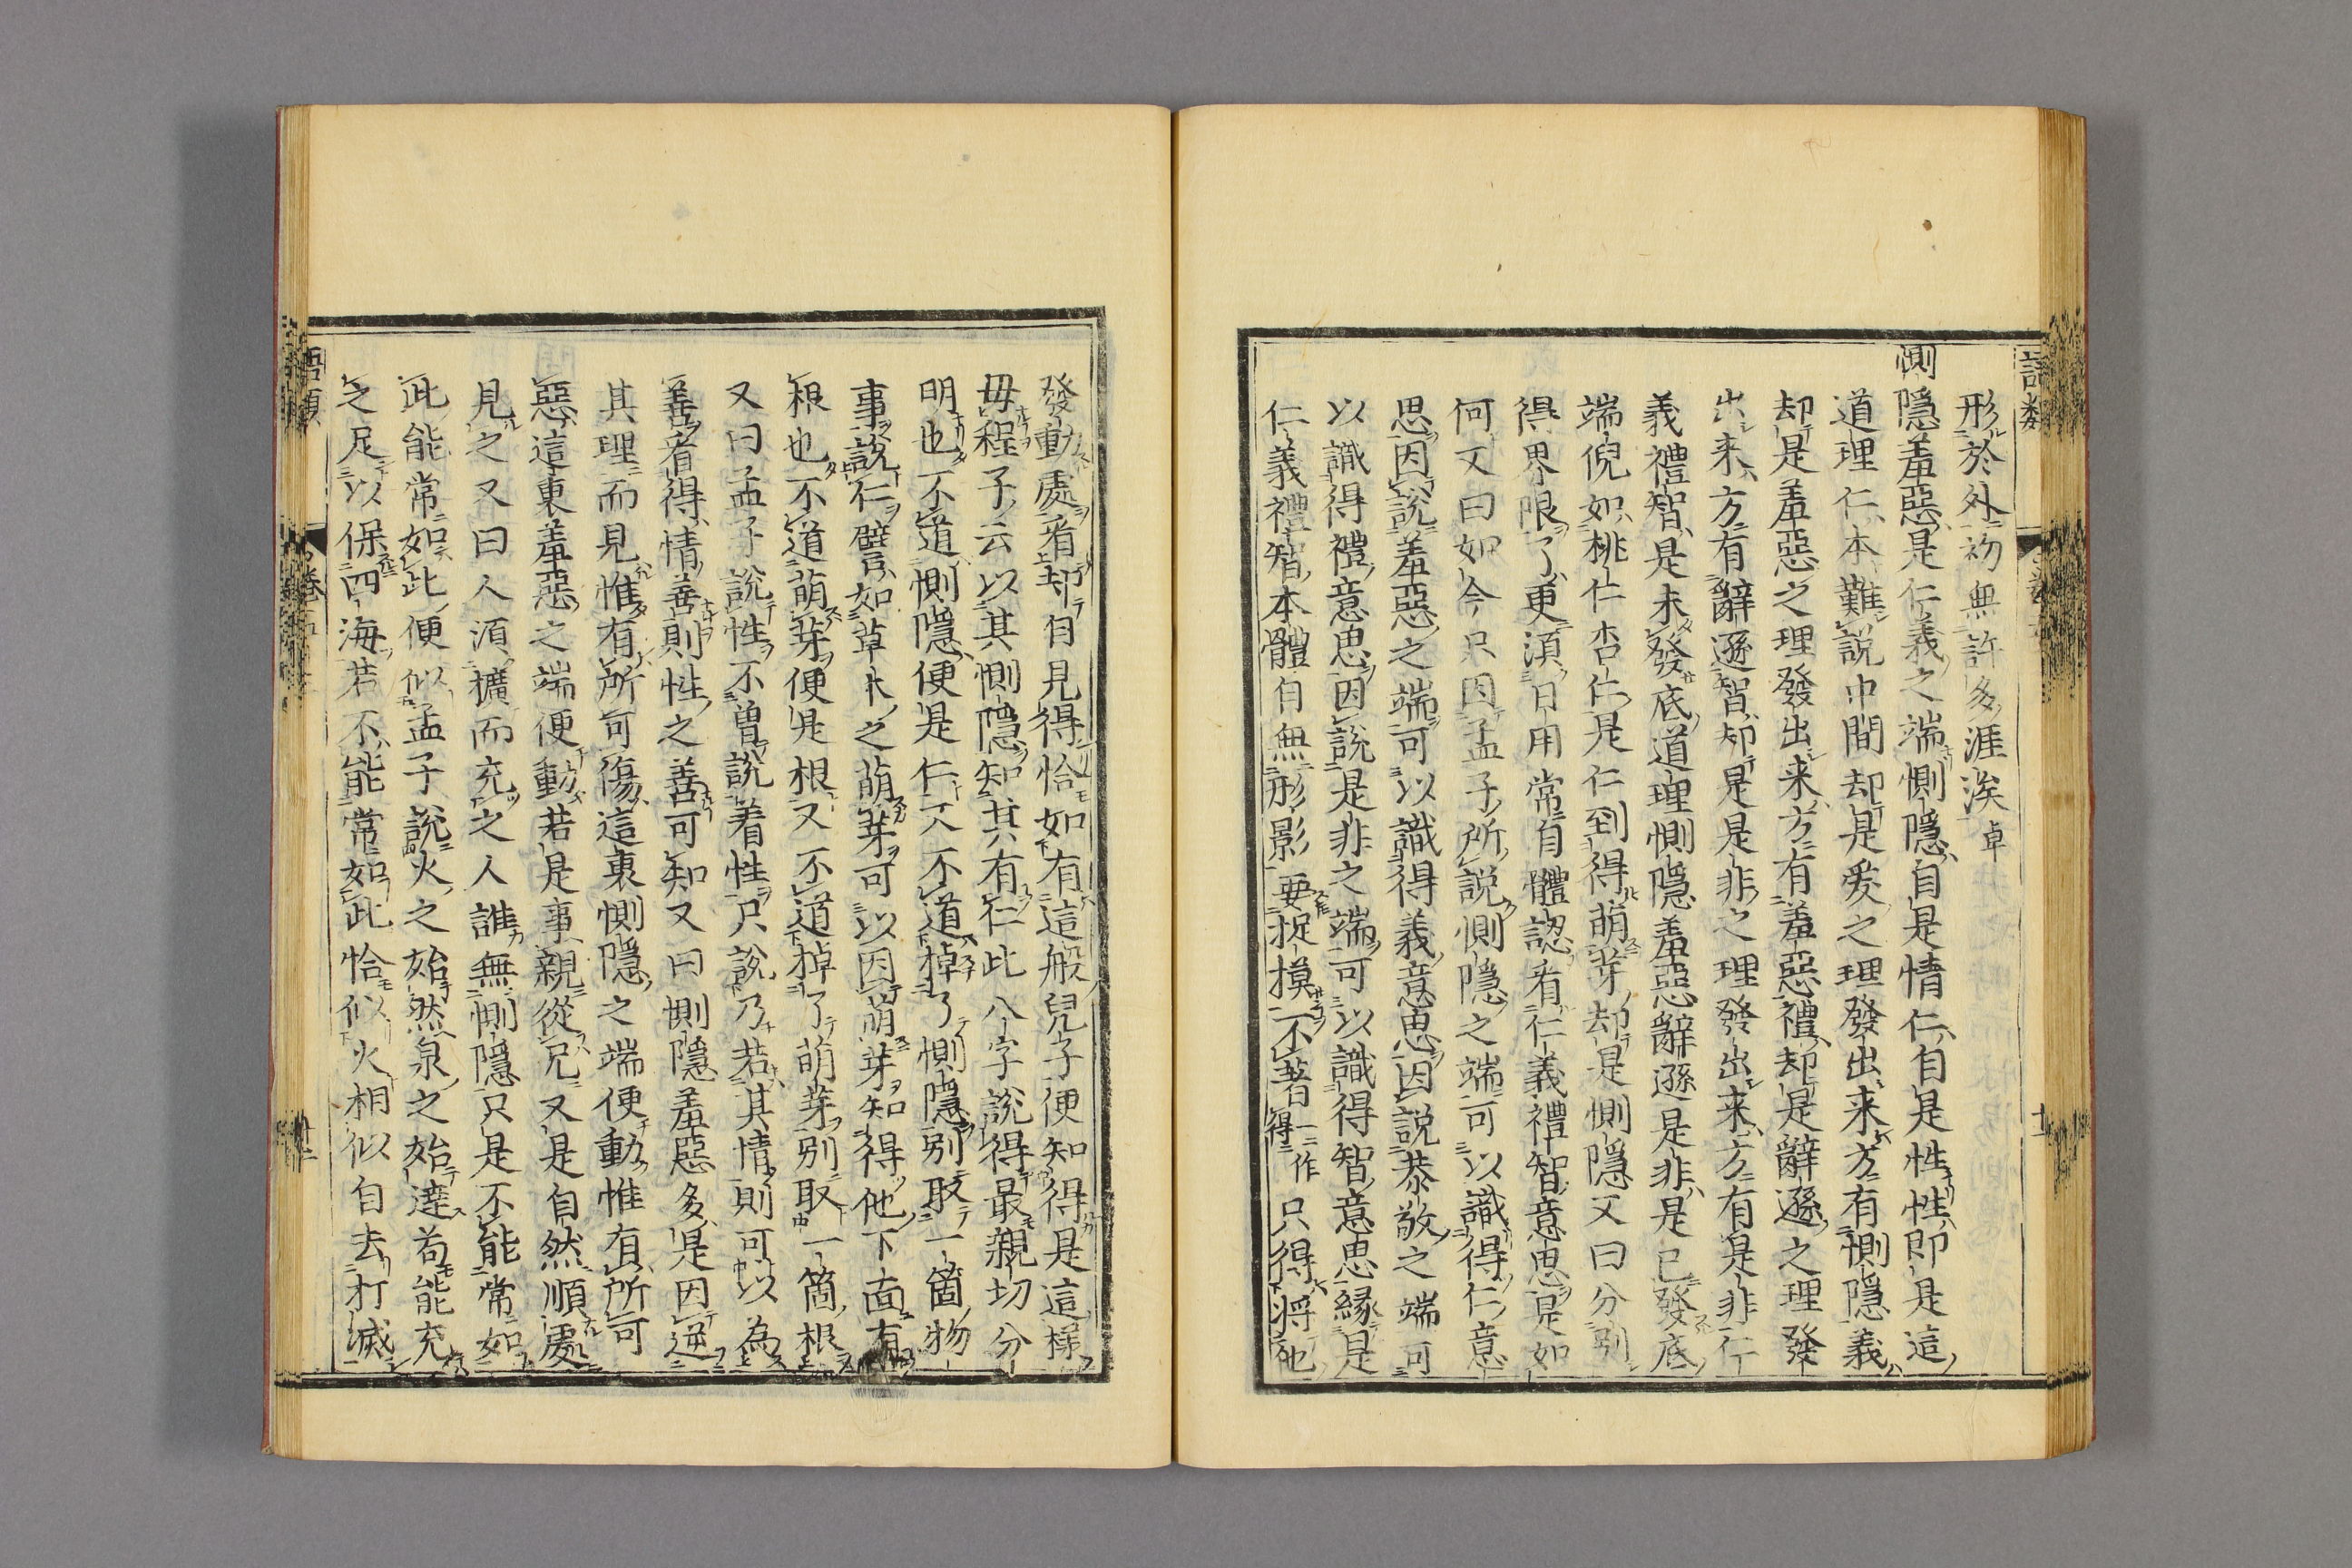 語類
十一
形於外初無許多涯涘卓
惻隱羞惡是仁義之端惻隱自是情仁自是性性即是這
道理仁本難說中間却是爱之理發出来方有惻隱義
却是羞惡之理發出来方有羞惡禮却是辭遜之理發
出来方有辭遜智却是是非之理發出来方有是非仁
義禮智是未發底道理惻隱羞惡辭遜是非是已發底
端倪如桃仁杏仁是仁到得萌芽却是惻隱又曰分别
得界限了更湏日用常自體認看仁義禮智意思是如
何又曰如今只因孟子所說惻隱之端可以識得仁意
思因說羞惡之端可以識得義意思因說恭敬之端可
以識得禮意思因說是非之端可以識得智意思縁是
仁義禮智本體自無形影要捉摸不著一作得只得将他
發動處看却自見得恰如有這般兒子便知得是這樣
毋程子云以其惻隱知其有仁此八字說得最親切分
明也不道惻隱便是仁又不道掉了惻隱别取一箇物
事說仁譬如草木之萌芽可以因萌芽知得他下面有
根也不道萌芽便是根又不道掉了萌芽别取一箇根
又曰孟子說性不曾說着性只說乃若其情則可以為
善看得情善則性之善可知又曰惻隱羞惡多是因逆
其理而見惟有所可傷這裏惻隱之端便動惟有所可
惡這裏羞惡之端便動若是事親從兄又是自然順處
見之又曰人湏擴而充之人誰無惻隱只是不能常如
此能常如此便似孟子說火之始然泉之始達苟能充
之足以保四海若不能常如此恰似火相似自去打滅